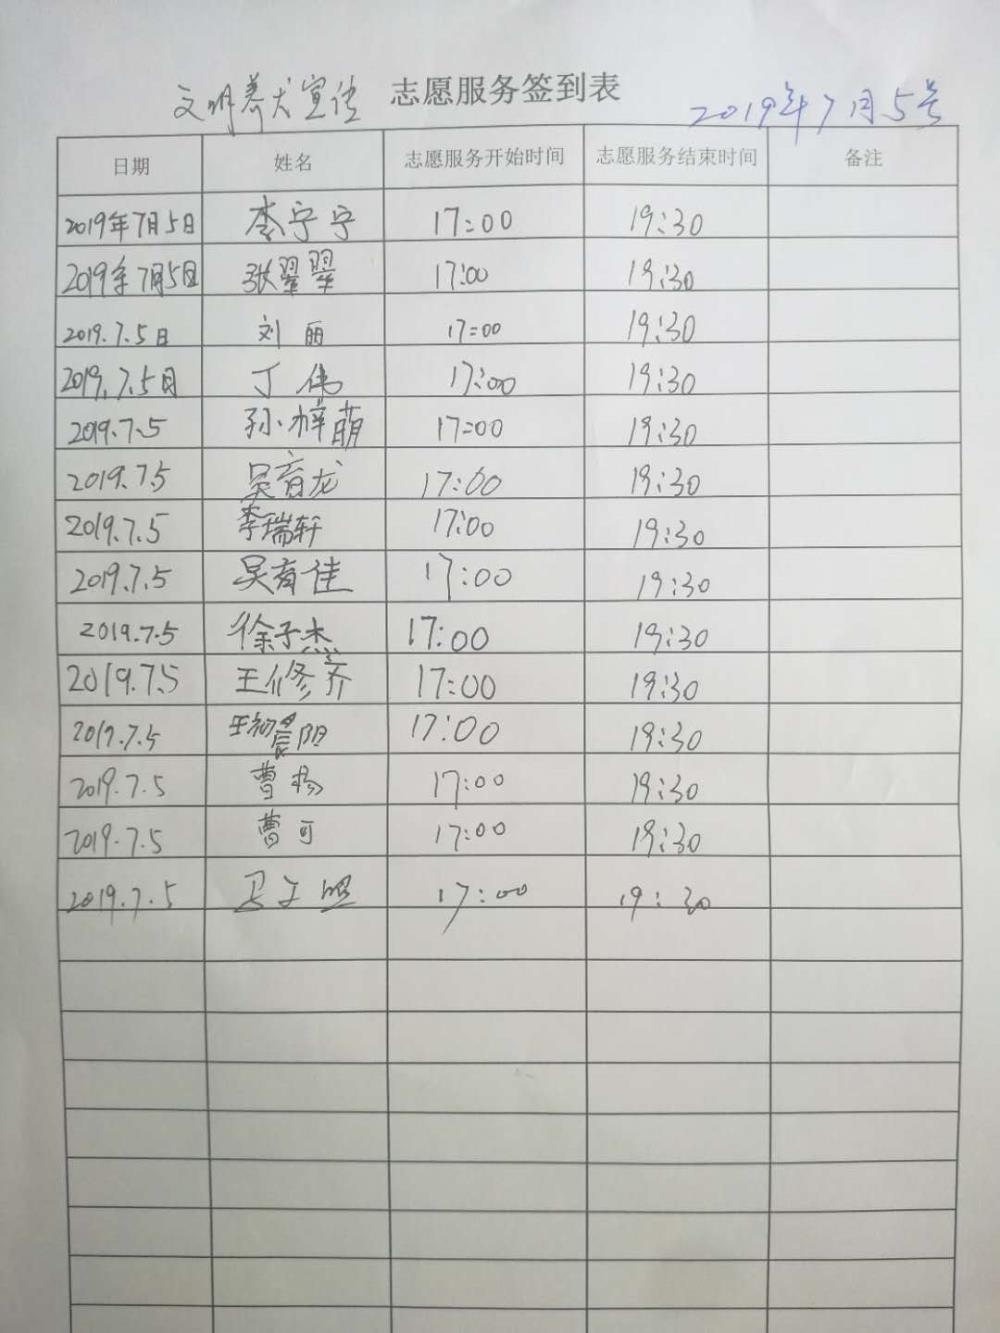 文明养犬宣传 志愿服务签到表
2019年7月5号
日期 姓名 志愿服务开始时间 志愿服务结束时间 备注
2019年7月5日 李宁宁 17:00 19:30
2019年7月5日 张翠翠 17:00 19:30
2019.7.5日 刘丽 17:00 19:30
2019.7.5日 丁伟 17:00 19:30
2019.7.5 孙梓萌 17:00 19:30
2019.7.5 吴育龙 17:00 19:30
2019.7.5 李瑞轩 17:00 19:30
2019.7.5 吴育佳 17:00 19:30
2019.7.5 徐子杰 17:00 19:30
2019.7.5 王修齐 17:00 19:30
2019.7.5 17:00 19:30
2019.7.5 曹杨 17:00 19:30
2019.7.5 曹可 17:00 19:30
2019.7.5 17:00 19:30